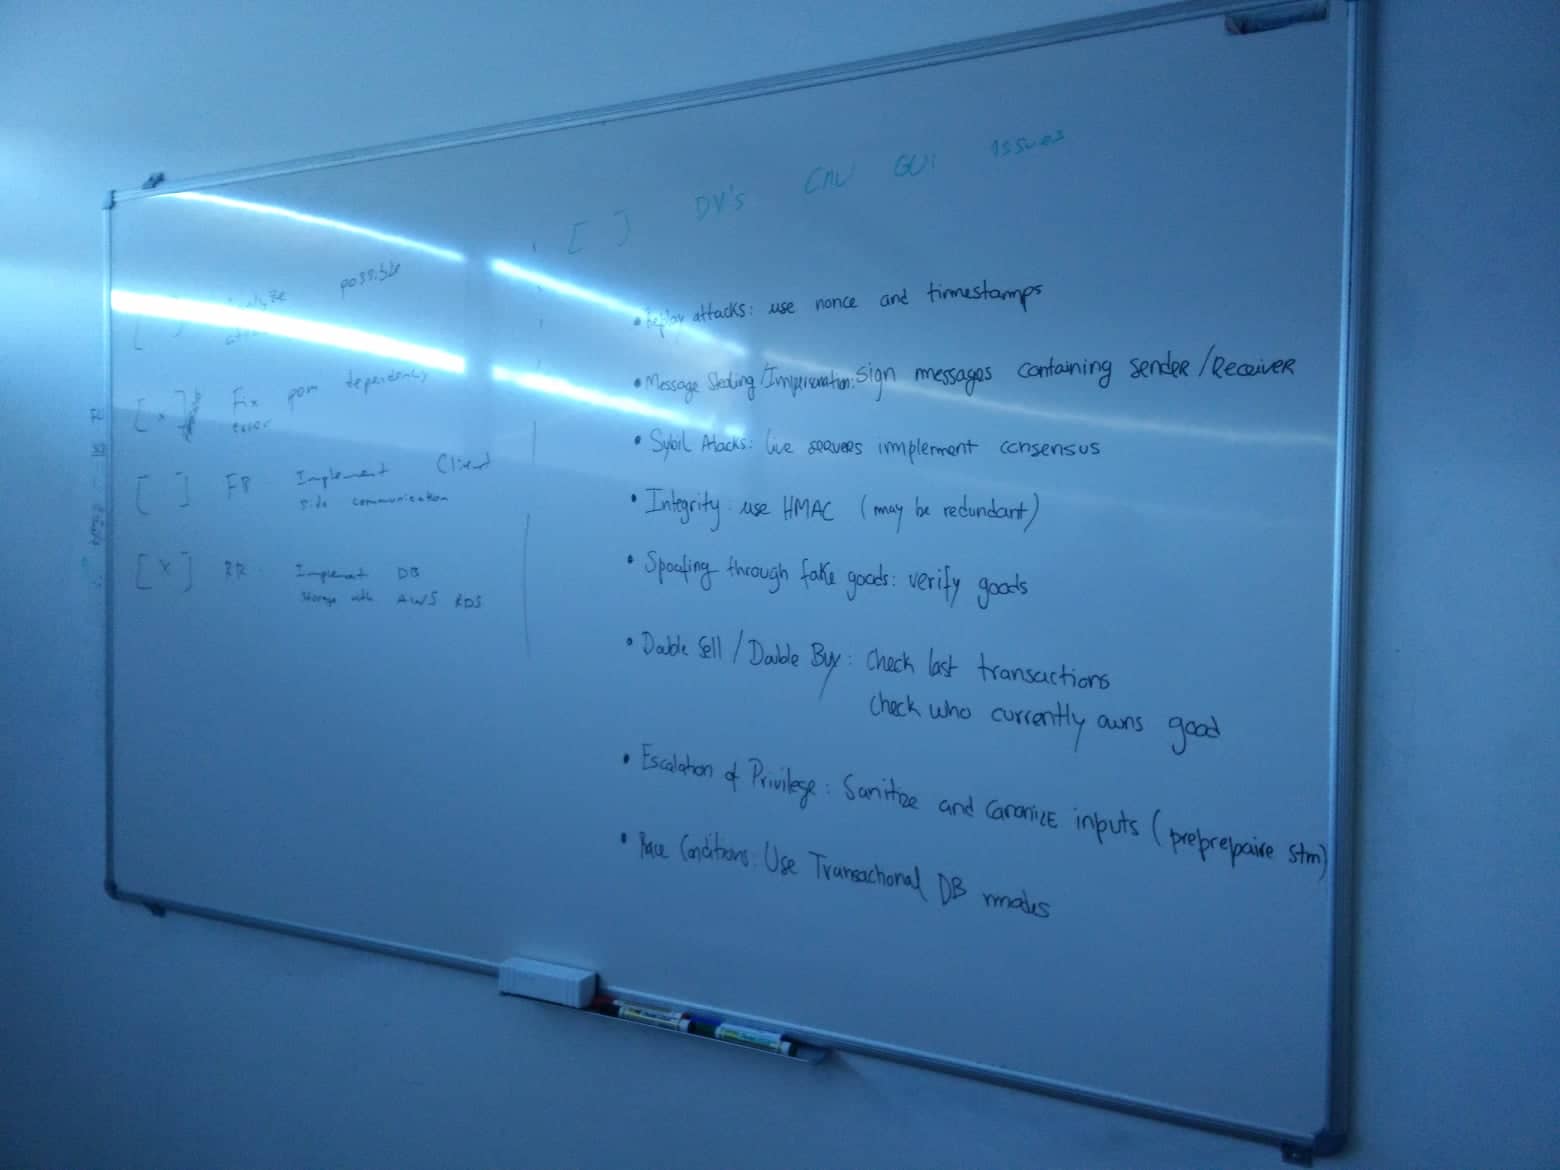 [ ] DV's CMU GUI issues
possible
[ ]
[x] Fix pom dependency
error
[ ] FB Implement Client
side communication
[x] RR Implement DB
storage with AWS RDS
• Replay attacks: use nonce and timestamps
• Message Stealing/Impersonation: sign messages containing sender/Receiver
• Sybil Attacks: servers implement consensus
• Integrity: use HMAC (may be redundant)
• Spoofing through fake goods: verify goods
• Double Sell / Double Buy: check last transactions
check who currently owns good
• Escalation of Privilege: Sanitize and canonize inputs (preprepaire stm)
• Race Conditions: Use Transactional DB modes